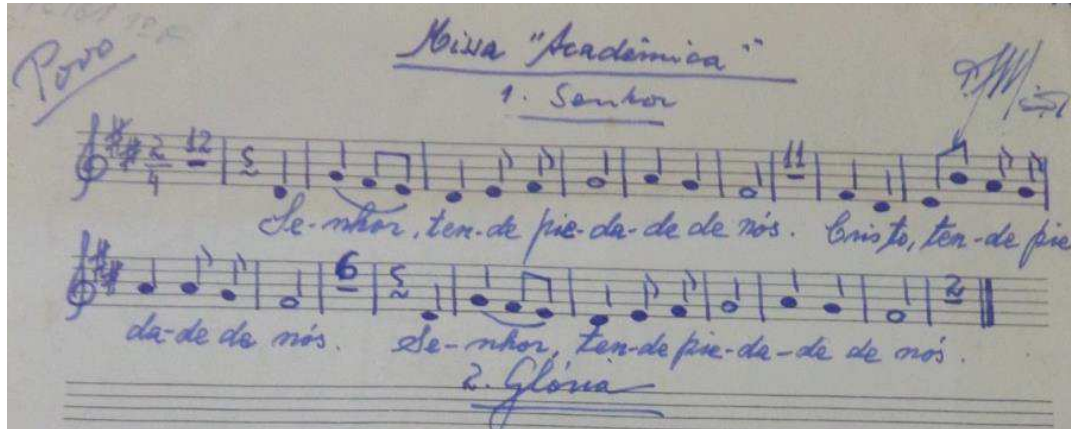 Povo
Missa "Acadêmica"
1. Senhor
2 4 12 11
Se-nhor, ten-de pie-da-de de nós. Cristo, ten-de pie
6 2
da-de de nós. Se-nhor, ten-de pie-da-de de nós.
2. Glória